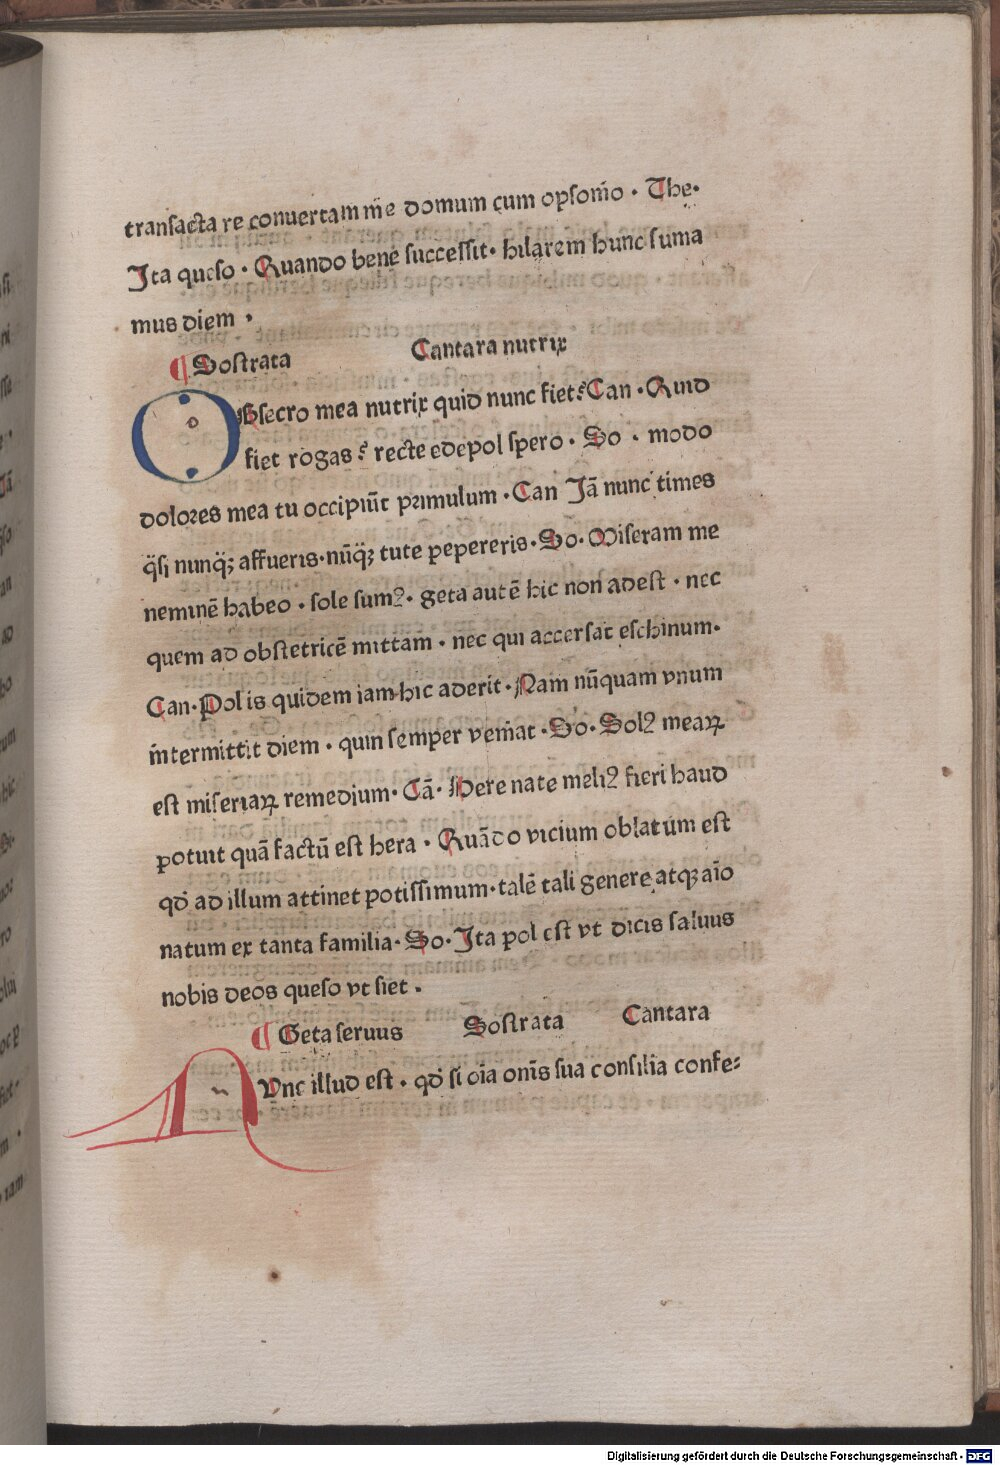 tranſacta re conuertam me domum cum opſonio · The·
Ita queſo · Quando bene ſucceſſit· hilarem hunc ſuma
mus diem ·
¶ Soſtrata Cantara nutrix
OBſecro mea nutrix quid nunc fiet? Can · Quid
fiet rogas? recte edepol ſpero · So · modo
dolores mea tu occipiūt primulum · Can Jā nunc times
q̄ſi nunq̄ꝫ affueris·nūq̄ꝫ tute pepereris· So· Miſeram me
neminē habeo · ſole ſumꝰ · geta autē hic non adeſt · nec
quem ad obſtetricē mittam · nec qui accerſat eſchinum·
Can· Pol is quidem iam hic aderit · Nam nūquam vnum
intermittit diem · quin ſemper veniat · So· Solꝰ meaꝝ
eſt miſeriaꝝ remedium· Cā· Here nate meliꝰ fieri haud
potuit quā factū eſt hera · Quādo vicium oblatum eſt
qđ ad illum attinet potiſſimum· talē tali genere atqꝫ aīo
natum ex tanta familia· So· Ita pol eſt vt dicis ſaluus
nobis deos queſo vt ſiet ·
¶ Geta ſeruus Soſtrata Cantara
NVnc illud eſt · qđ ſi oīa om̄s ſua conſilia confe⸗
Digitalisierung gefördert durch die Deutsche Forschungsgemeinschaft - DFG